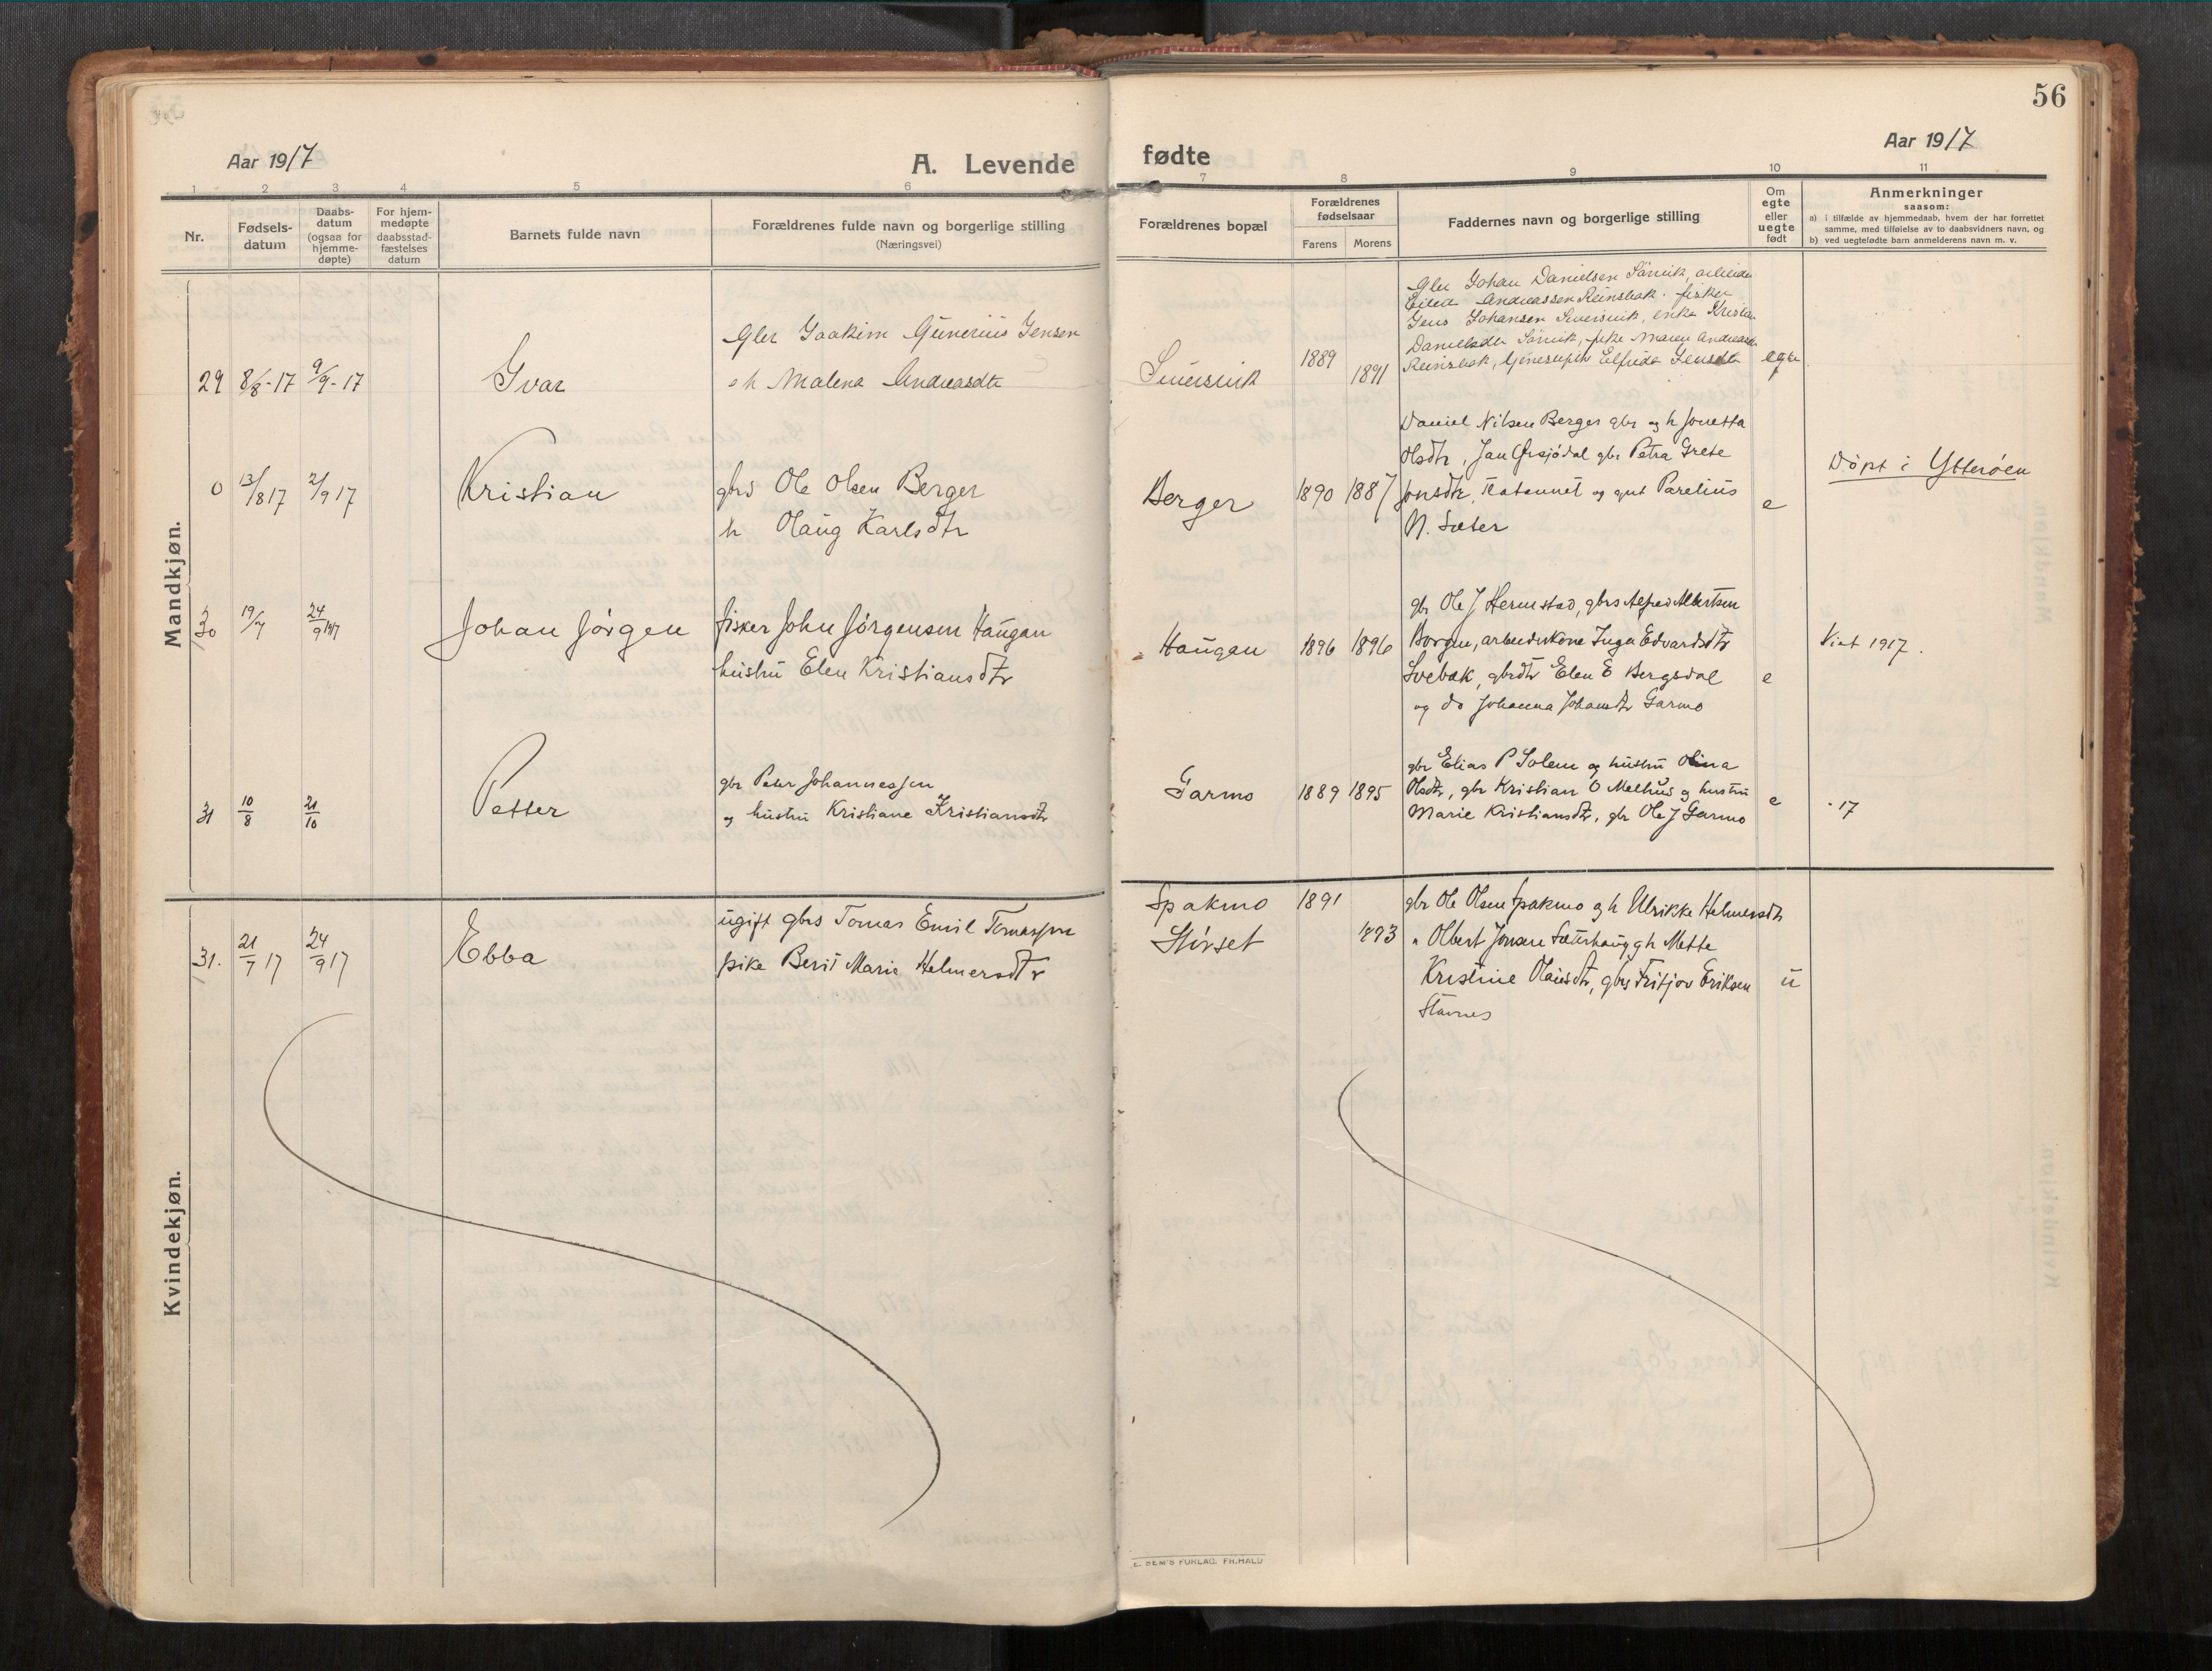 56
Aar 1917
A. Levende
fødte
Aar 1917
1 2 3 4 5 6 7 8 9 10 11
Nr.
Fødsels-
datum
Daabs-
datum
(ogsaa for
hjemme-
døpte)
For hjem-
medøpte
daabsstad-
fæstelses
datum
Barnets fulde navn
Forældrenes fulde navn og borgerlige stilling
(Næringsvei)
Forældrenes bopæl
Forældrenes
fødselsaar
Farens Morens
Faddernes navn og borgerlige stilling
Om
egte
eller
uegte
født
Anmerkninger
saasom:
a) i tilfælde av hjemmedaab, hvem der har forrettet
samme, med tilføielse av to daabsvidners navn, og
b) ved uegtefødte barn anmelderens navn m. v.
Mandkjøn.
29 8/8-17 9/9-17
Ivar
Gbr Joakim Gunerius Jensen
o h Malena Andreasdtr
1889 1891
Gbr Johan Danielsen
Andreassen Reinsbak, fisker
Jens Johansen
Danielsdtr
Reinsbak,
egte
0 13/8 17 2/9 17
Kristian
gbrs Ole Olsen Berger
h Olaug Karlsdtr
Berger
1890 1887
Daniel Nilsen Berger gbr og h Jonetta
Olsdtr, Jan gbr Petra Grete
Jonsdtr, og gut Parelius
N. Sæter
e
Döpt i Ytterøen
30 19/7 24/9 1917
Johan Jörgen
fisker John Jörgensen Haugan
hustru Elen Kristiansdtr
Haugan
1896 1896
gbr Ole J Hermstad, gbrs Alfred Albertsen
Borgen, arbeiderkone Inga Edvardsdtr
Svebak, gbrdtr Elen E Bergsdal
og do Johanna Johansdtr Garmo
e
Viet 1917.
31 10/8 21/10
Petter
gbr Peter Johannessen
og hustru Kristiane Kristiansdtr
Garmo
1889 1895
gbr Elias P Solem og hustru Olina
Olsdtr, gbr Kristian O Melhus og hustru
Marie Kristiansdtr, gbr Ole J Garmo
e
-17
Kvindekjøn.
31. 21/7 17 24/9 17
Ebba
ugift gbrs Tomas Emil Tomassen
pike Berit Marie Helmersdtr
Spakmo
Störset
1891
1893
gbr Ole Olsen Spakmo og h Ulrikke Helmersdtr
" Olbert Jonsen Sæterhaug gh Mette
Kristine Olausdtr, gbrs Fritjov Eriksen
Stavnes
u
E. SEM'S FORLAG. FR.HALD